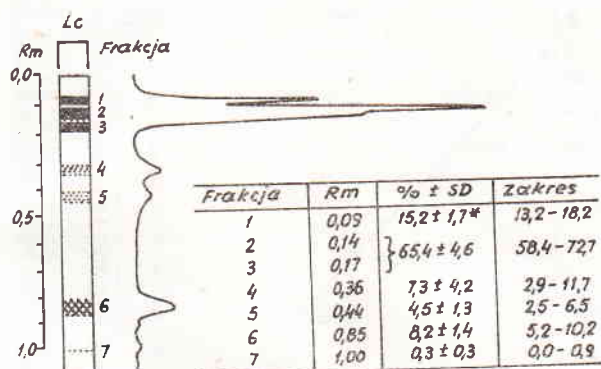 Lc
Rm Frakcja
0,0
1
2
3
4
5
0,5
6
1,0
7
Frakcja Rm % ± SD Zakres
1 0,09 15,2 ± 1,7* 13,2 - 18,2
2 0,14 } 65,4 ± 4,6 58,4 - 72,7
3 0,17
4 0,36 7,3 ± 4,2 2,9 - 11,7
5 0,44 4,5 ± 1,3 2,5 - 6,5
6 0,85 8,2 ± 1,4 5,2 - 10,2
7 1,00 0,3 ± 0,3 0,0 - 0,9